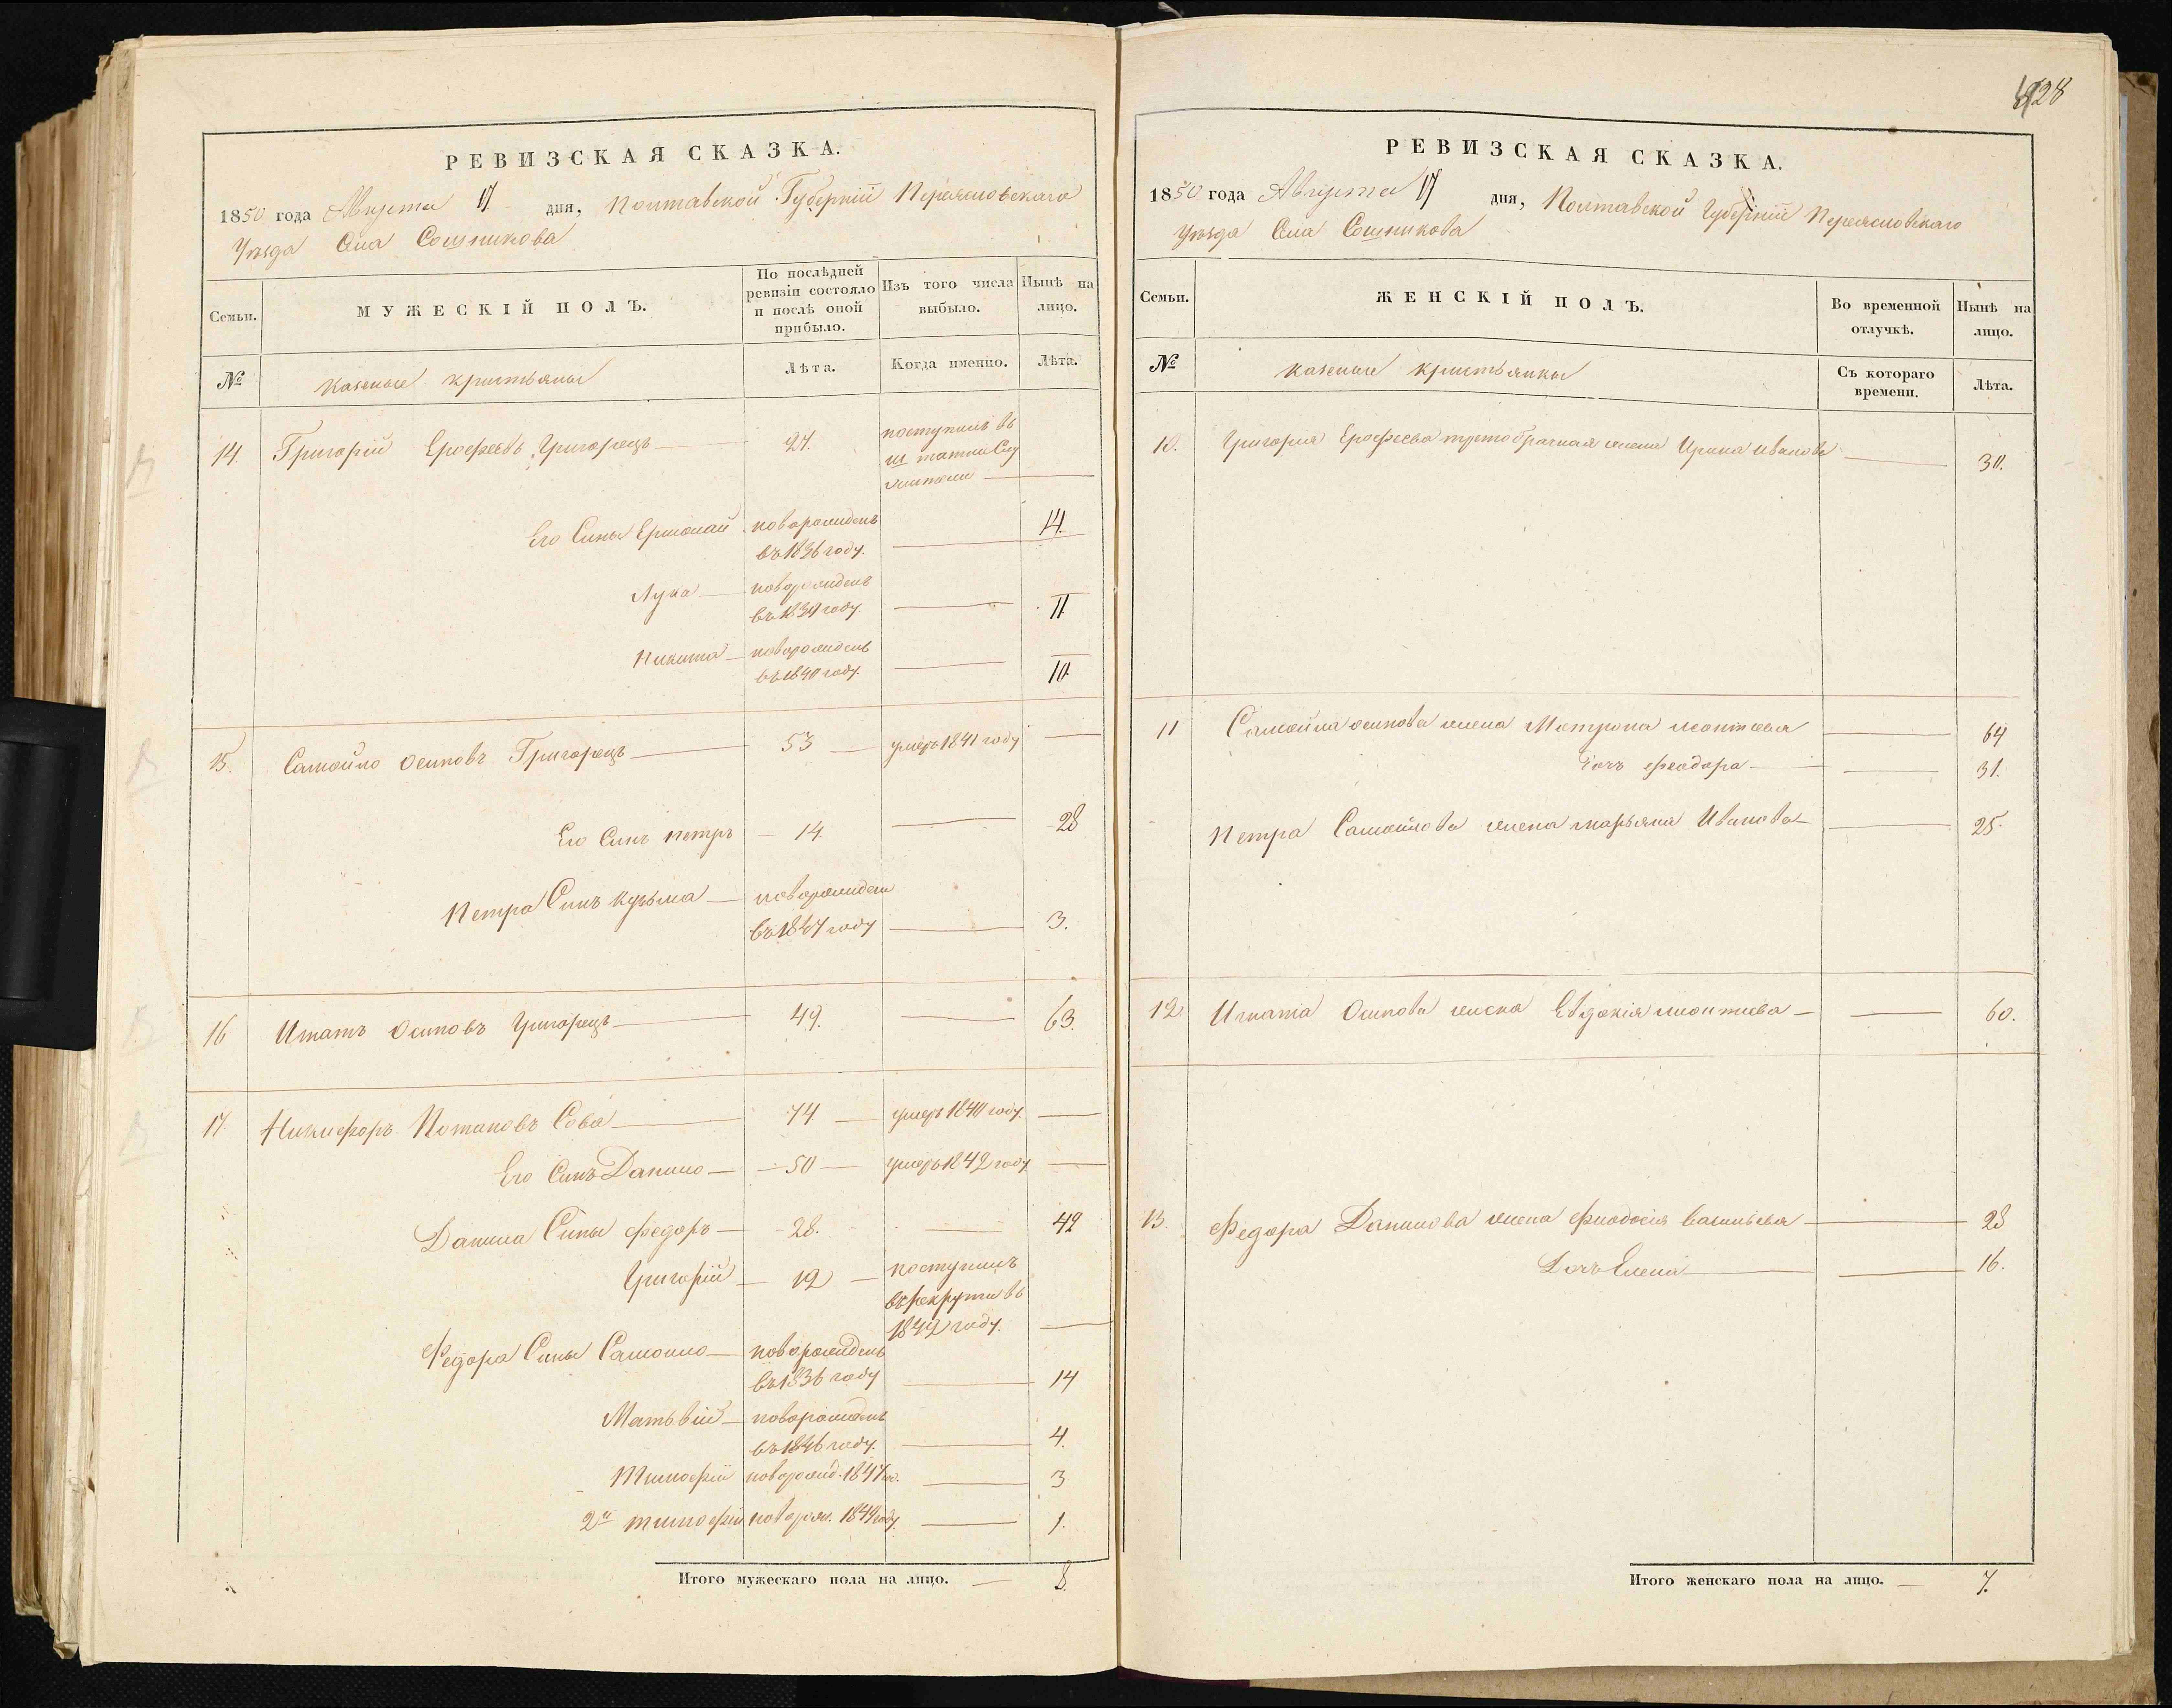 828
РЕВИЗСКАЯ СКАЗКА.
1850 года Августа 17 дня, Полтавской Губерніи Переясловскаго
Уѣзда Села Сошникова
Семьи.
МУЖЕСКІЙ ПОЛЪ.
По послѣдней ревизіи состояло и послѣ оной прибыло.
Изъ того числа выбыло.
Нынѣ на лицо.
№
казеные кристьяны
Лѣта.
Когда именно.
Лѣта.
14. Григорій Ерофеевъ Григорецъ 27. поступилъ въ
Его Сины Ермолай новорожденъ въ 1836 году. 14.
Лука новорожденъ въ 1839 году. 11
Никита новорожденъ въ 1840 году. 10.
15. Самойло Осиповъ Григорецъ 53 умеръ 1841 году
Его Синъ петръ 14 28
Петра Синъ кузьма новорожден въ 1847 году 3.
16 Игнатъ Осиповъ Григорецъ 49. 63.
17. Никифоръ Потаповъ Сова 74 умеръ 1840 году.
Его Синъ Данило 50 умеръ 1842 году
Данила Сины Федоръ 28. 42
Григорій 12 поступилъ въ рекруты въ 1849 году.
Федора Сины Самоило новорожденъ въ 1836 году 14
Матьвій новорожденъ въ 1846 году. 4.
Тимофій новорожд. 1847 го. 3
2й тимофій новорож. 1849 году. 1.
Итого мужескаго пола на лицо. 8.
РЕВИЗСКАЯ СКАЗКА.
1850 года Августа 17 дня, Полтавской Губерніи Переясловскаго
Уѣзда Села Сошникова
Семьи.
ЖЕНСКІЙ ПОЛЪ.
Во временной отлучкѣ.
Нынѣ на лицо.
№
казеные кристьянкы
Съ котораго времени.
Лѣта.
10. Григория Ерофеева третобрачная жена Ирина иванова 30.
11 Самойла осипова жена Матрона леонтьева 64
Дочъ феодора 31.
Петра Самойлова жена марьяна Иванова 25.
12 Игната Осипова жена Евдокія леонтиева 60.
13. Федора Данилова жена Фиодосия васильева 28
Дочъ Елена 16.
Итого женскаго пола на лицо. 7.